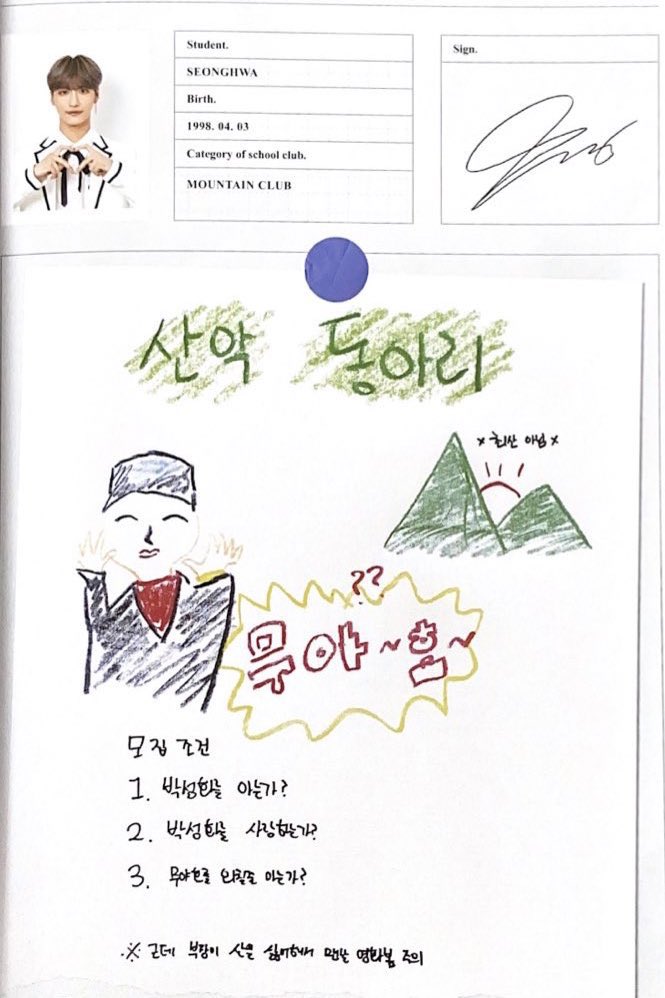 Student.
SEONGHWA
Birth.
1998. 04. 03
Category of school club.
MOUNTAIN CLUB
Sign.
산악 동아리
x 최산 아님 x
??
무야~호~
모집 조건
1. 박성화를 아는가?
2. 박성화를 사랑하는가?
3. 무야호를 외칠줄 아는가?
※ 근데 부장이 산을 싫어해서 맨날 영화봄 주의